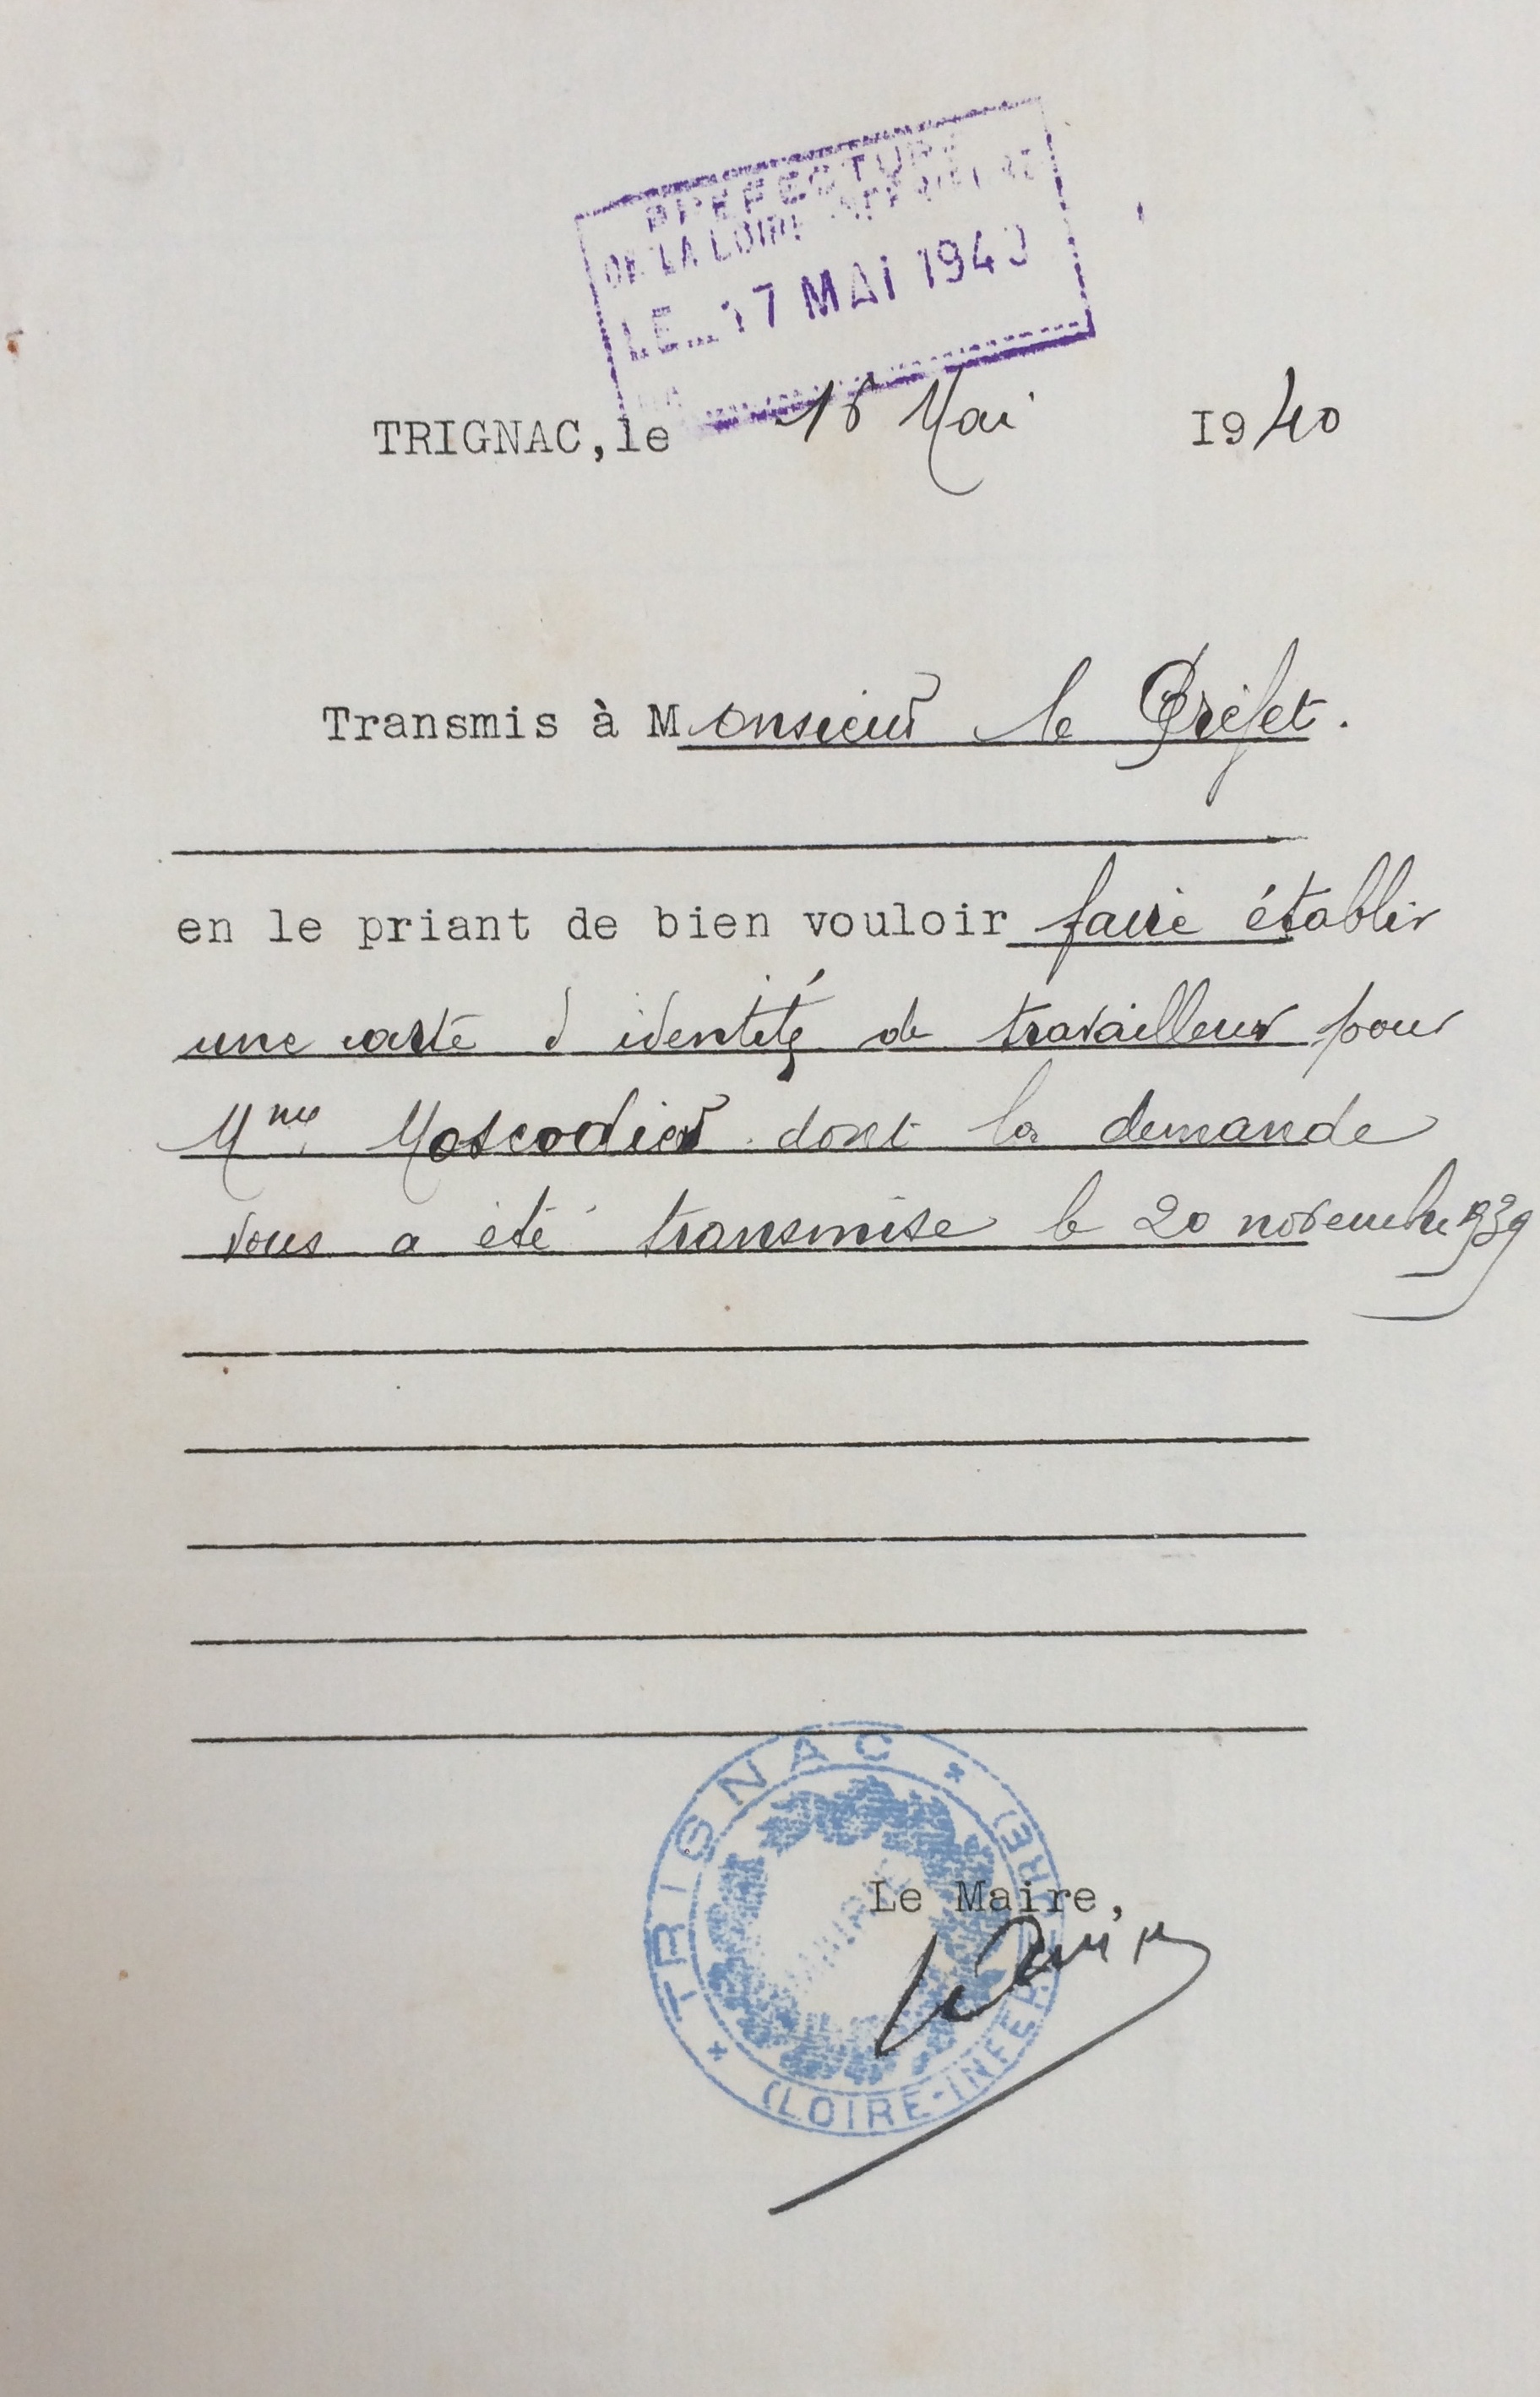 PREFECTURE
DE LA LOIRE INFERIEURE
LE 17 MAI 1940
TRIGNAC, le 16 Mai 1940
Transmis à Monsieur le Préfet.
en le priant de bien vouloir faire établir
une carte d identité de travailleur pour
Mme dont la demande
vous a été transmise le 20 novembre 1939
Le Maire,
TRIGNAC
MAIRIE
(LOIRE-INFERIEURE)